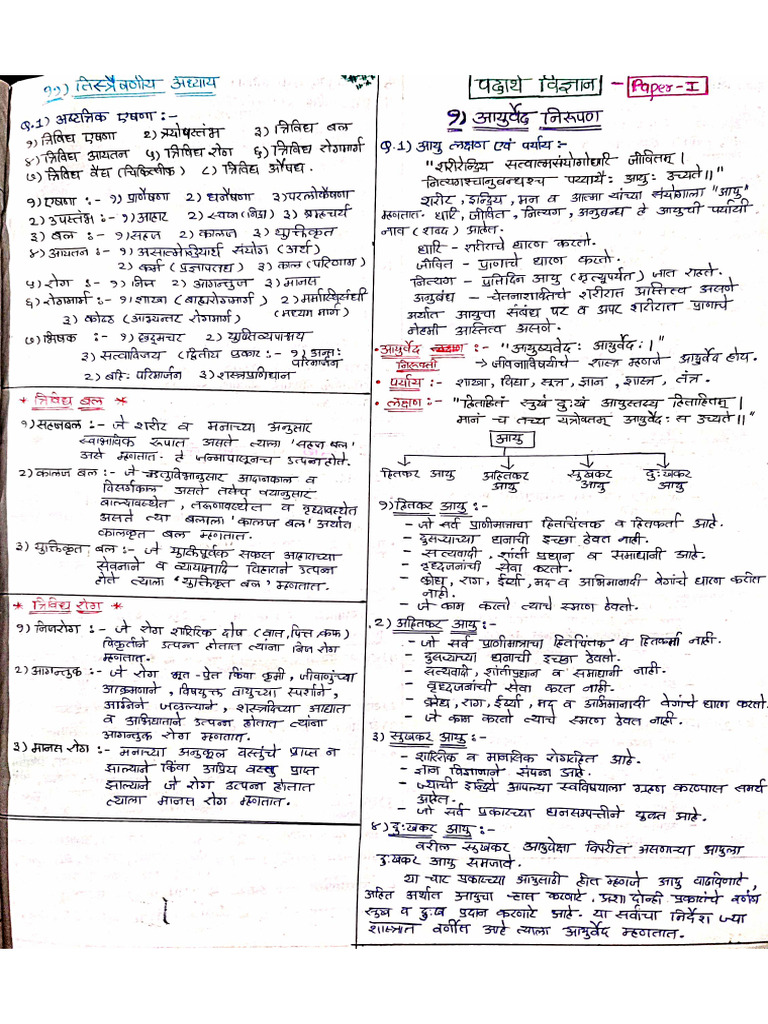 ११) तिस्त्रैषणीय अध्याय
Q.1) अष्टत्रिक एषणा :-
१) त्रिविध एषणा २) त्रयोपस्तंभ ३) त्रिविध बल
४) त्रिविध आयतन ५) त्रिविध रोग ६) त्रिविध रोगमार्ग
७) त्रिविध वैद्य (चिकित्सीक) ८) त्रिविध औषध.
१) एषणा :- १) प्राणैषणा २) धनैषणा ३) परलोकैषणा
२) उपस्तंभ :- १) आहार २) स्वप्न (निद्रा) ३) ब्रह्मचर्य
३) बल :- १) सहज २) कालज ३) युक्तिकृत
४) आयतन :- १) असात्मेन्द्रियार्थ संयोग (अर्थ)
२) कर्म (प्रज्ञापराध) ३) काल (परिणाम)
५) रोग :- १) निज २) आगन्तुज ३) मानस
६) रोगमार्ग :- १) शाखा (बाह्यरोगमार्ग) २) मर्मास्थिसंधी
३) कोष्ठ (आभ्यन्तर रोगमार्ग) (मध्यम मार्ग)
७) भिषक :- १) छद्मचर २) युक्तिव्यपाश्रय
३) सत्वाविजय (द्वितीय प्रकार :- १) अन्तः परिमार्जन
२) बहिः परिमार्जन ३) शस्त्रप्रणिधान
* त्रिविध बल *
१) सहजबल :- जे शरीर व मनाच्या अनुसार
स्वाभाविक रूपात असते त्याला 'सहज बल'
असे म्हणतात. ते जन्मापासूनच उत्पन्न होते.
२) कालज बल :- जे ऋतुविभागानुसार आदानकाल व
विसर्गकाल असते तसेच वयानुसार
बाल्यावस्थेत, तरुणावस्थेत व वृद्धावस्थेत
असते त्या बलाला 'कालज बल' अर्थात
कालकृत बल म्हणतात.
३) युक्तिकृत बल :- जे युक्तिपूर्वक सकल आहाराच्या
सेवनाने व व्यायामादि विहाराने उत्पन्न
होते त्याला 'युक्तिकृत बल' म्हणतात.
* त्रिविध रोग *
१) निजरोग :- जे रोग शारिरिक दोष (वात, पित्त, कफ)
विकृतीने उत्पन्न होतात त्यांना निज रोग
म्हणतात.
२) आगन्तुक :- जे रोग भूत-प्रेत किंवा कृमी, जीवाणूंच्या
आक्रमणाने, विषयुक्त वायुच्या स्पर्शाने,
अग्निने जळल्याने, शस्त्रादिच्या आघात
व अभिघाताने उत्पन्न होतात त्यांना
आगन्तुक रोग म्हणतात.
३) मानस रोग :- मनाच्या अनुकूल वस्तुंचे प्राप्त न
झाल्याने किंवा अप्रिय वस्तु प्राप्त
झाल्याने जे रोग उत्पन्न होतात
त्याला मानस रोग म्हणतात.
पदार्थ विज्ञान - Paper-I
१) आयुर्वेद निरूपण
Q.1) आयु लक्षण एवं पर्याय :-
"शरीरेन्द्रिय सत्वात्मसंयोगोधारि जीवितम्।
नित्यगश्चानुबन्धश्च पर्य्यायैः आयुः उच्यते।।"
शरीर, इन्द्रिय, मन व आत्मा यांच्या संयोगाला "आयु"
म्हणतात. धारि, जीवित, नित्यग, अनुबन्ध हे आयुची पर्यायी
नाव (शब्द) आहेत.
धारि - शरीराचे धारण करतो.
जीवित - प्राणाचे धारण करतो.
नित्यग - प्रतिदिन आयु (मृत्युपर्यंत) जात राहते.
अनुबंध - चेतनाशक्तिचे शरीरात अस्तित्व असणे
अर्थात आयुचा संबंध पर व अपर शरीरात प्राणाचे
नेहमी अस्तित्व असणे.
• आयुर्वेद :- "आयुष्यवेदः आयुर्वेदः।"
निरूक्ती → जीवनाविषयीचे शास्त्र म्हणजे आयुर्वेद होय.
• पर्याय :- शाखा, विद्या, सूत्र, ज्ञान, शास्त्र, तंत्र.
• लक्षण :- "हिताहितं सुखं दुःखं आयुस्तस्य हिताहितम्।
मानं च तच्च यत्रोक्तम् आयुर्वेदः स उच्यते।।"
आयु
हितकर आयु अहितकर आयु सुखकर आयु दुःखकर आयु
१) हितकर आयु :-
- जो सर्व प्राणीमात्राचा हितचिंतक व हितकर्ता आहे.
- दुसऱ्याच्या धनाची इच्छा ठेवत नाही.
- सत्यवादी, शांती प्रधान व समाधानी आहे.
- वृद्धजनांची सेवा करतो.
- क्रोध, राग, ईर्ष्या, मद व अभिमानादी वेगांचे धारण करीत
नाही.
- जे काम करतो त्याचे स्मरण ठेवतो.
२) अहितकर आयु :-
- जो सर्व प्राणीमात्राचा हितचिंतक व हितकर्मा नाही.
- दुसऱ्याच्या धनाची इच्छा ठेवतो.
- सत्यवादी, शांतीप्रधान व समाधानी नाही.
- वृद्धजनांची सेवा करत नाही.
- क्रोध, राग, ईर्ष्या, मद व अभिमानादी वेगांचे धारण करतो.
- जे काम करतो त्याचे स्मरण ठेवत नाही.
३) सुखकर आयु :-
- शारिरिक व मानसिक रोगरहित आहे.
- ज्ञान विज्ञानाने संपन्न आहे.
- ज्याची इंद्रिये आपल्या स्वविषयाला ग्रहण करण्यास समर्थ
आहेत.
- जो सर्व प्रकारच्या धनसम्पत्तीने युक्त आहे.
४) दुःखकर आयु :-
वरील सुखकर आयुपेक्षा विपरीत असणाऱ्या आयुला
दुःखकर आयु समजावे.
या चार प्रकारच्या आयुसाठी हीत म्हणजे आयु वाढविणारे,
अहित अर्थात आयुचा ऱ्हास करणारे. अशा दोन्ही प्रकारांचे वर्णन
सुख व दुःख प्रदान करणारे आहे. या सर्वांचा निर्देश ज्या
शास्त्रात वर्णीत आहे त्याला आयुर्वेद म्हणतात.